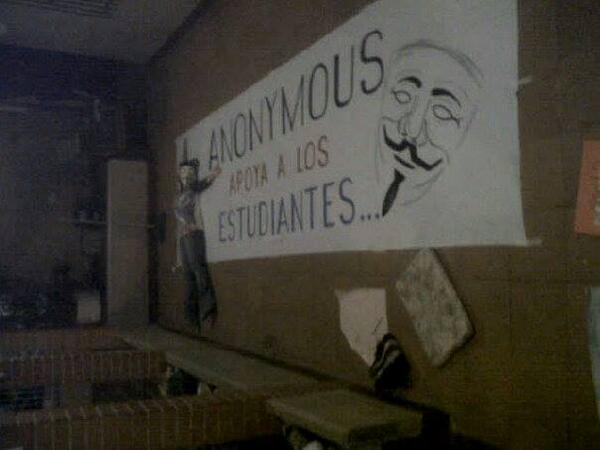 ANONYMOUS
APOYA A LOS
ESTUDIANTES...